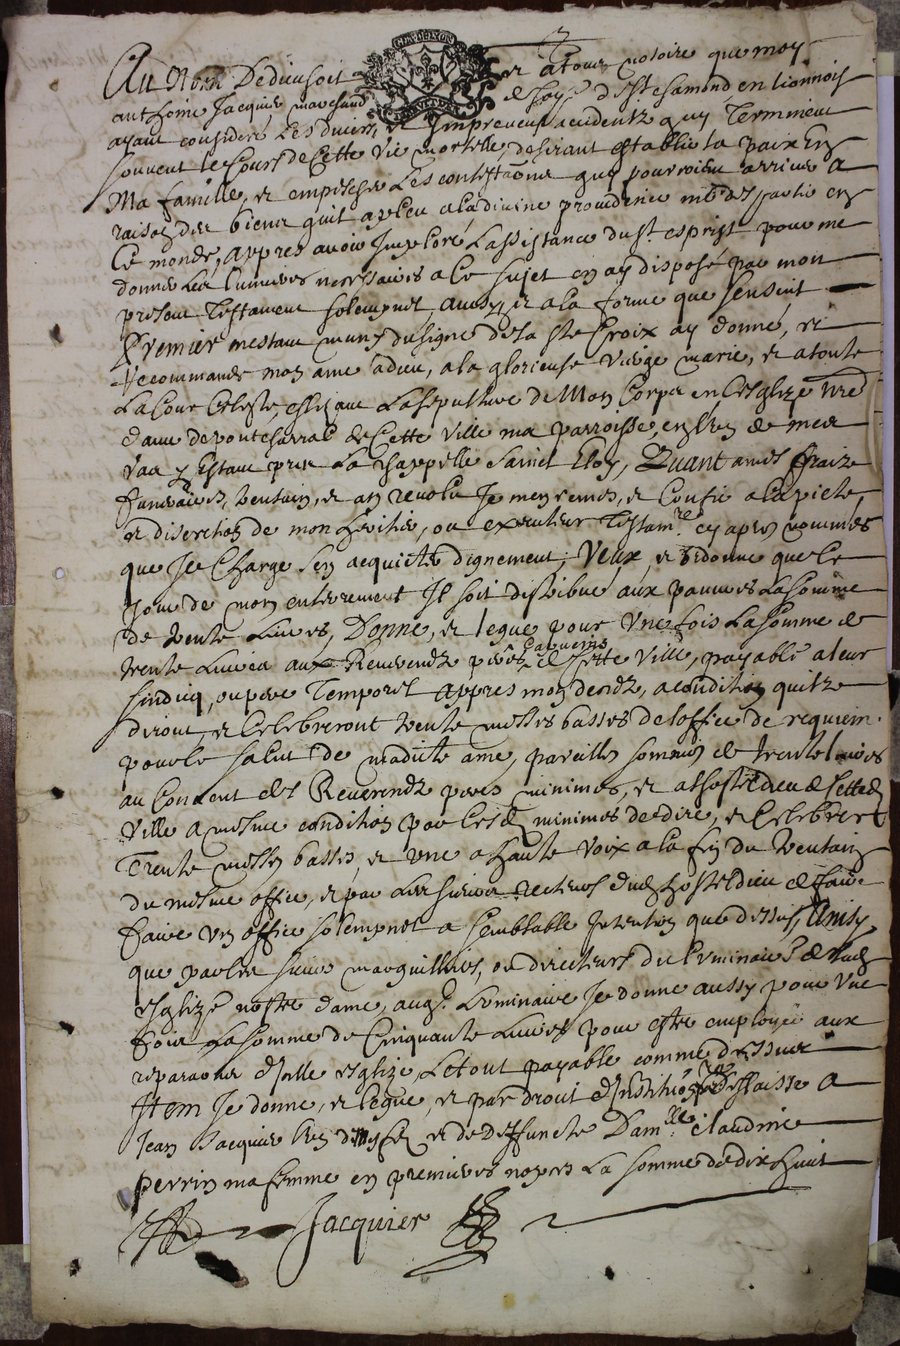 Au Nom De dieu soit et atous notoire que moy
anthoine Jacquier marchand de soye de st chamond en lionnois
ayant consideré les divers, et Impreveus accidentz quy Terminent
souvent le Cours de Cette vie mortelle, desirant establir la paix En
Ma famille, et empescher Les contestaõns quy pourroient arriver A
raison des biens quil a pleu a la divine providence me despartir en
Ce monde, appres avoir Imploré Lassistance du st. esprist pour me
donner Les lumieres necessaires a ce sujet en ay disposé par mon
present Testament solempnel, aussy, et a la forme que sensuit
Premier mestant muny du signe de la ste Croix ay donné, et
Recommande mon ame a dieu, a la glorieuse Vierge marie, et a toute
La Cour Celeste, eslizant La sepulture de Mon Corps en Lesglize nre
dame de ponteharral de Cette ville ma parroisse, en lun de mes
vas y Estant pres La chappelle Sainct Eloy, Quant a mes fraiz
funeraires, trentain, et an revolu Je men remes, et Confie a la pieté,
et discretion de mon heritier, ou executeur Testamre. cy apres nommés
que Je Charge sen acquicter dignement, Veux, et ordonne que le
jour de mon enterrement Il soit distribué aux pauvres La somme
de trente Livres, Donne, et legue pour Une fois La somme de
trente Livres aux Reverendz peres Capucins de Cette ville, payable a leur
sindicq, ou pere Temporel appres mon deces, a condition quilz
diront, et Celebreront trente messes basses de loffice de requiem
pour le salut de madicte ame, pareilles sommes de trente livres
au Convent des Reverendz peres minimes, et a lhostel dieu de Cette
Ville a mesme condition par lesd. minimes de dire, et Celebrer
Trente messes basses, et une a haute voix a la fin du trentain
du mesme office, et par Les sieurs Recteurs dud. hostel dieu de faire
faire un office solempnel a semblable Intention que dessus, Ainsy
que par les sieurs marguilliers, ou directeurs du Luminaire de lad.
esglize nostre dame, auq. Luminaire Je donne aussy pour Une
fois La somme de Cinquante Livres pour estre employée aux
reparaõns dicelle esglize, Le tout payable comme dessus
Item Je donne, et legue, et par droit dinstituõn delaisse A
Jean Jacquier mon fils et de deffuncte Damlle. Claudine
Perrin ma femme en premieres nopces La somme de dix huit
Jacquier